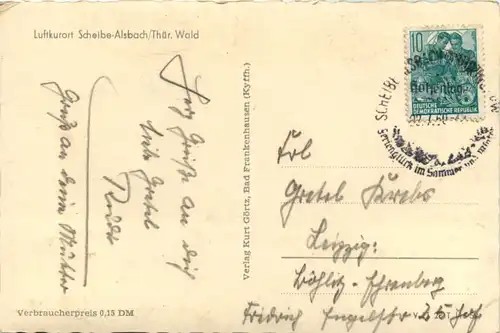 Luftkurort Scheibe-Alsbach/Thür. Wald
Herz. Grüße an dich
liebe Gretel
Gruß an deine Mutter
Verbraucherpreis 0,15 DM
Verlag Kurt Görtz, Bad Frankenhausen (Kyffh.)
10
DEUTSCHE
DEMOKRATISCHE REPUBLIK
Ferienglück im Sommer und Winter
Frl
Gretel Krebs
Leipzig:
Böhlitz-Ehrenberg
Friedrich Engelstr 25